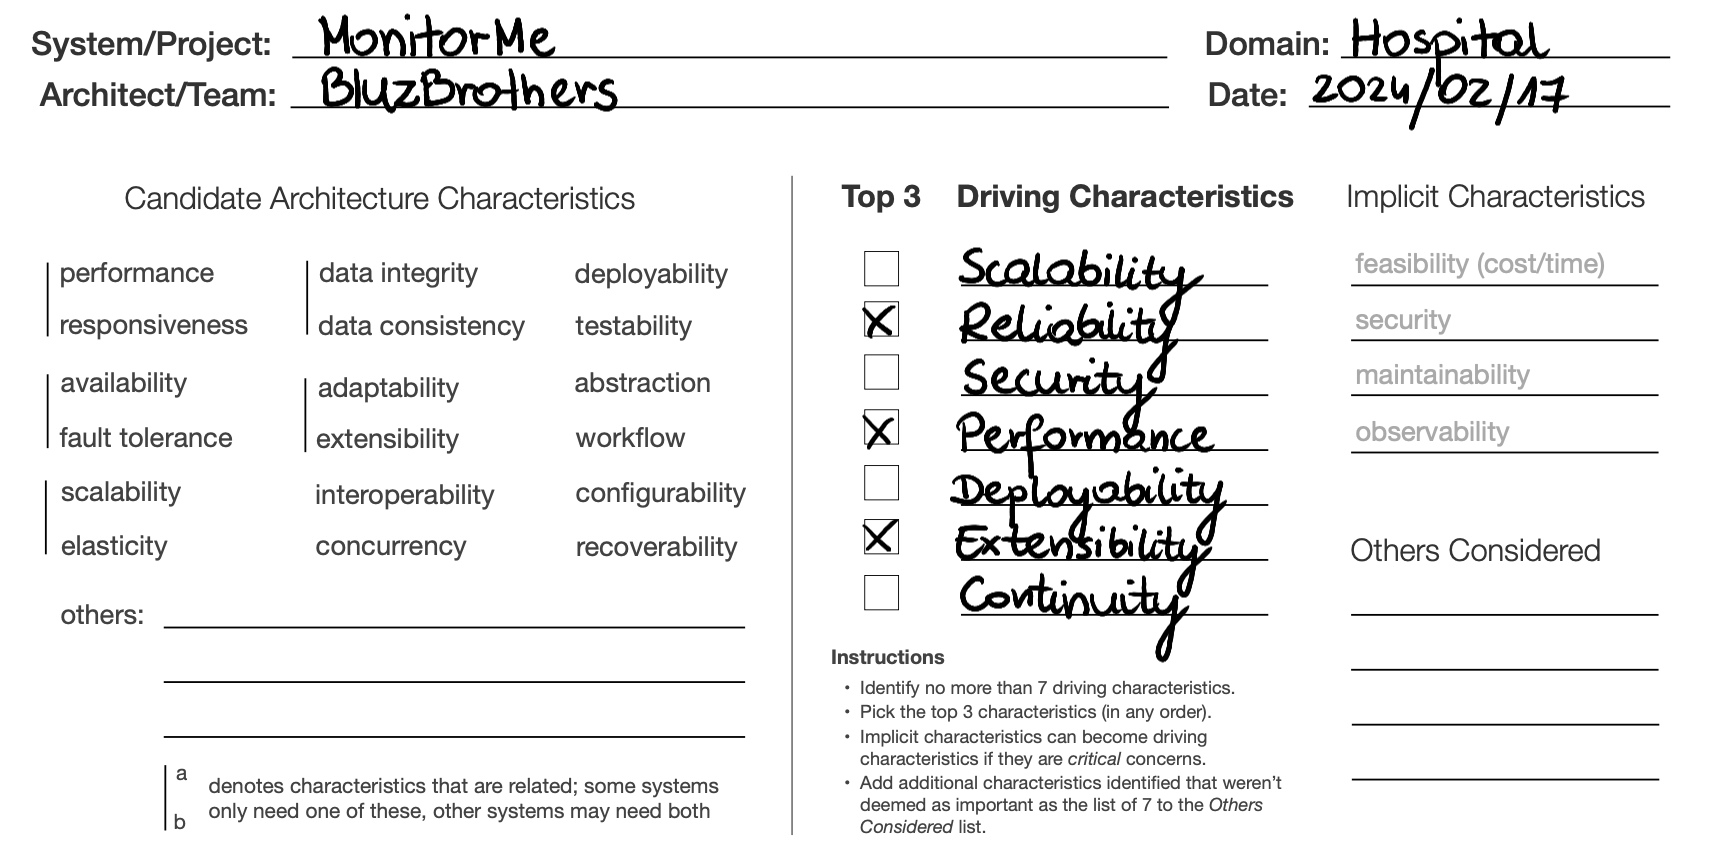 System/Project: MonitorMe
Domain: Hospital
Architect/Team: BluzBrothers
Date: 2024/02/17
Candidate Architecture Characteristics
performance
responsiveness
availability
fault tolerance
scalability
elasticity
data integrity
data consistency
adaptability
extensibility
interoperability
concurrency
deployability
testability
abstraction
workflow
configurability
recoverability
others:
a
b
denotes characteristics that are related; some systems
only need one of these, other systems may need both
Top 3 Driving Characteristics
Scalability
X Reliability
Security
X Performance
Deployability
X Extensibility
Continuity
Instructions
• Identify no more than 7 driving characteristics.
• Pick the top 3 characteristics (in any order).
• Implicit characteristics can become driving
characteristics if they are critical concerns.
• Add additional characteristics identified that weren’t
deemed as important as the list of 7 to the Others
Considered list.
Implicit Characteristics
feasibility (cost/time)
security
maintainability
observability
Others Considered